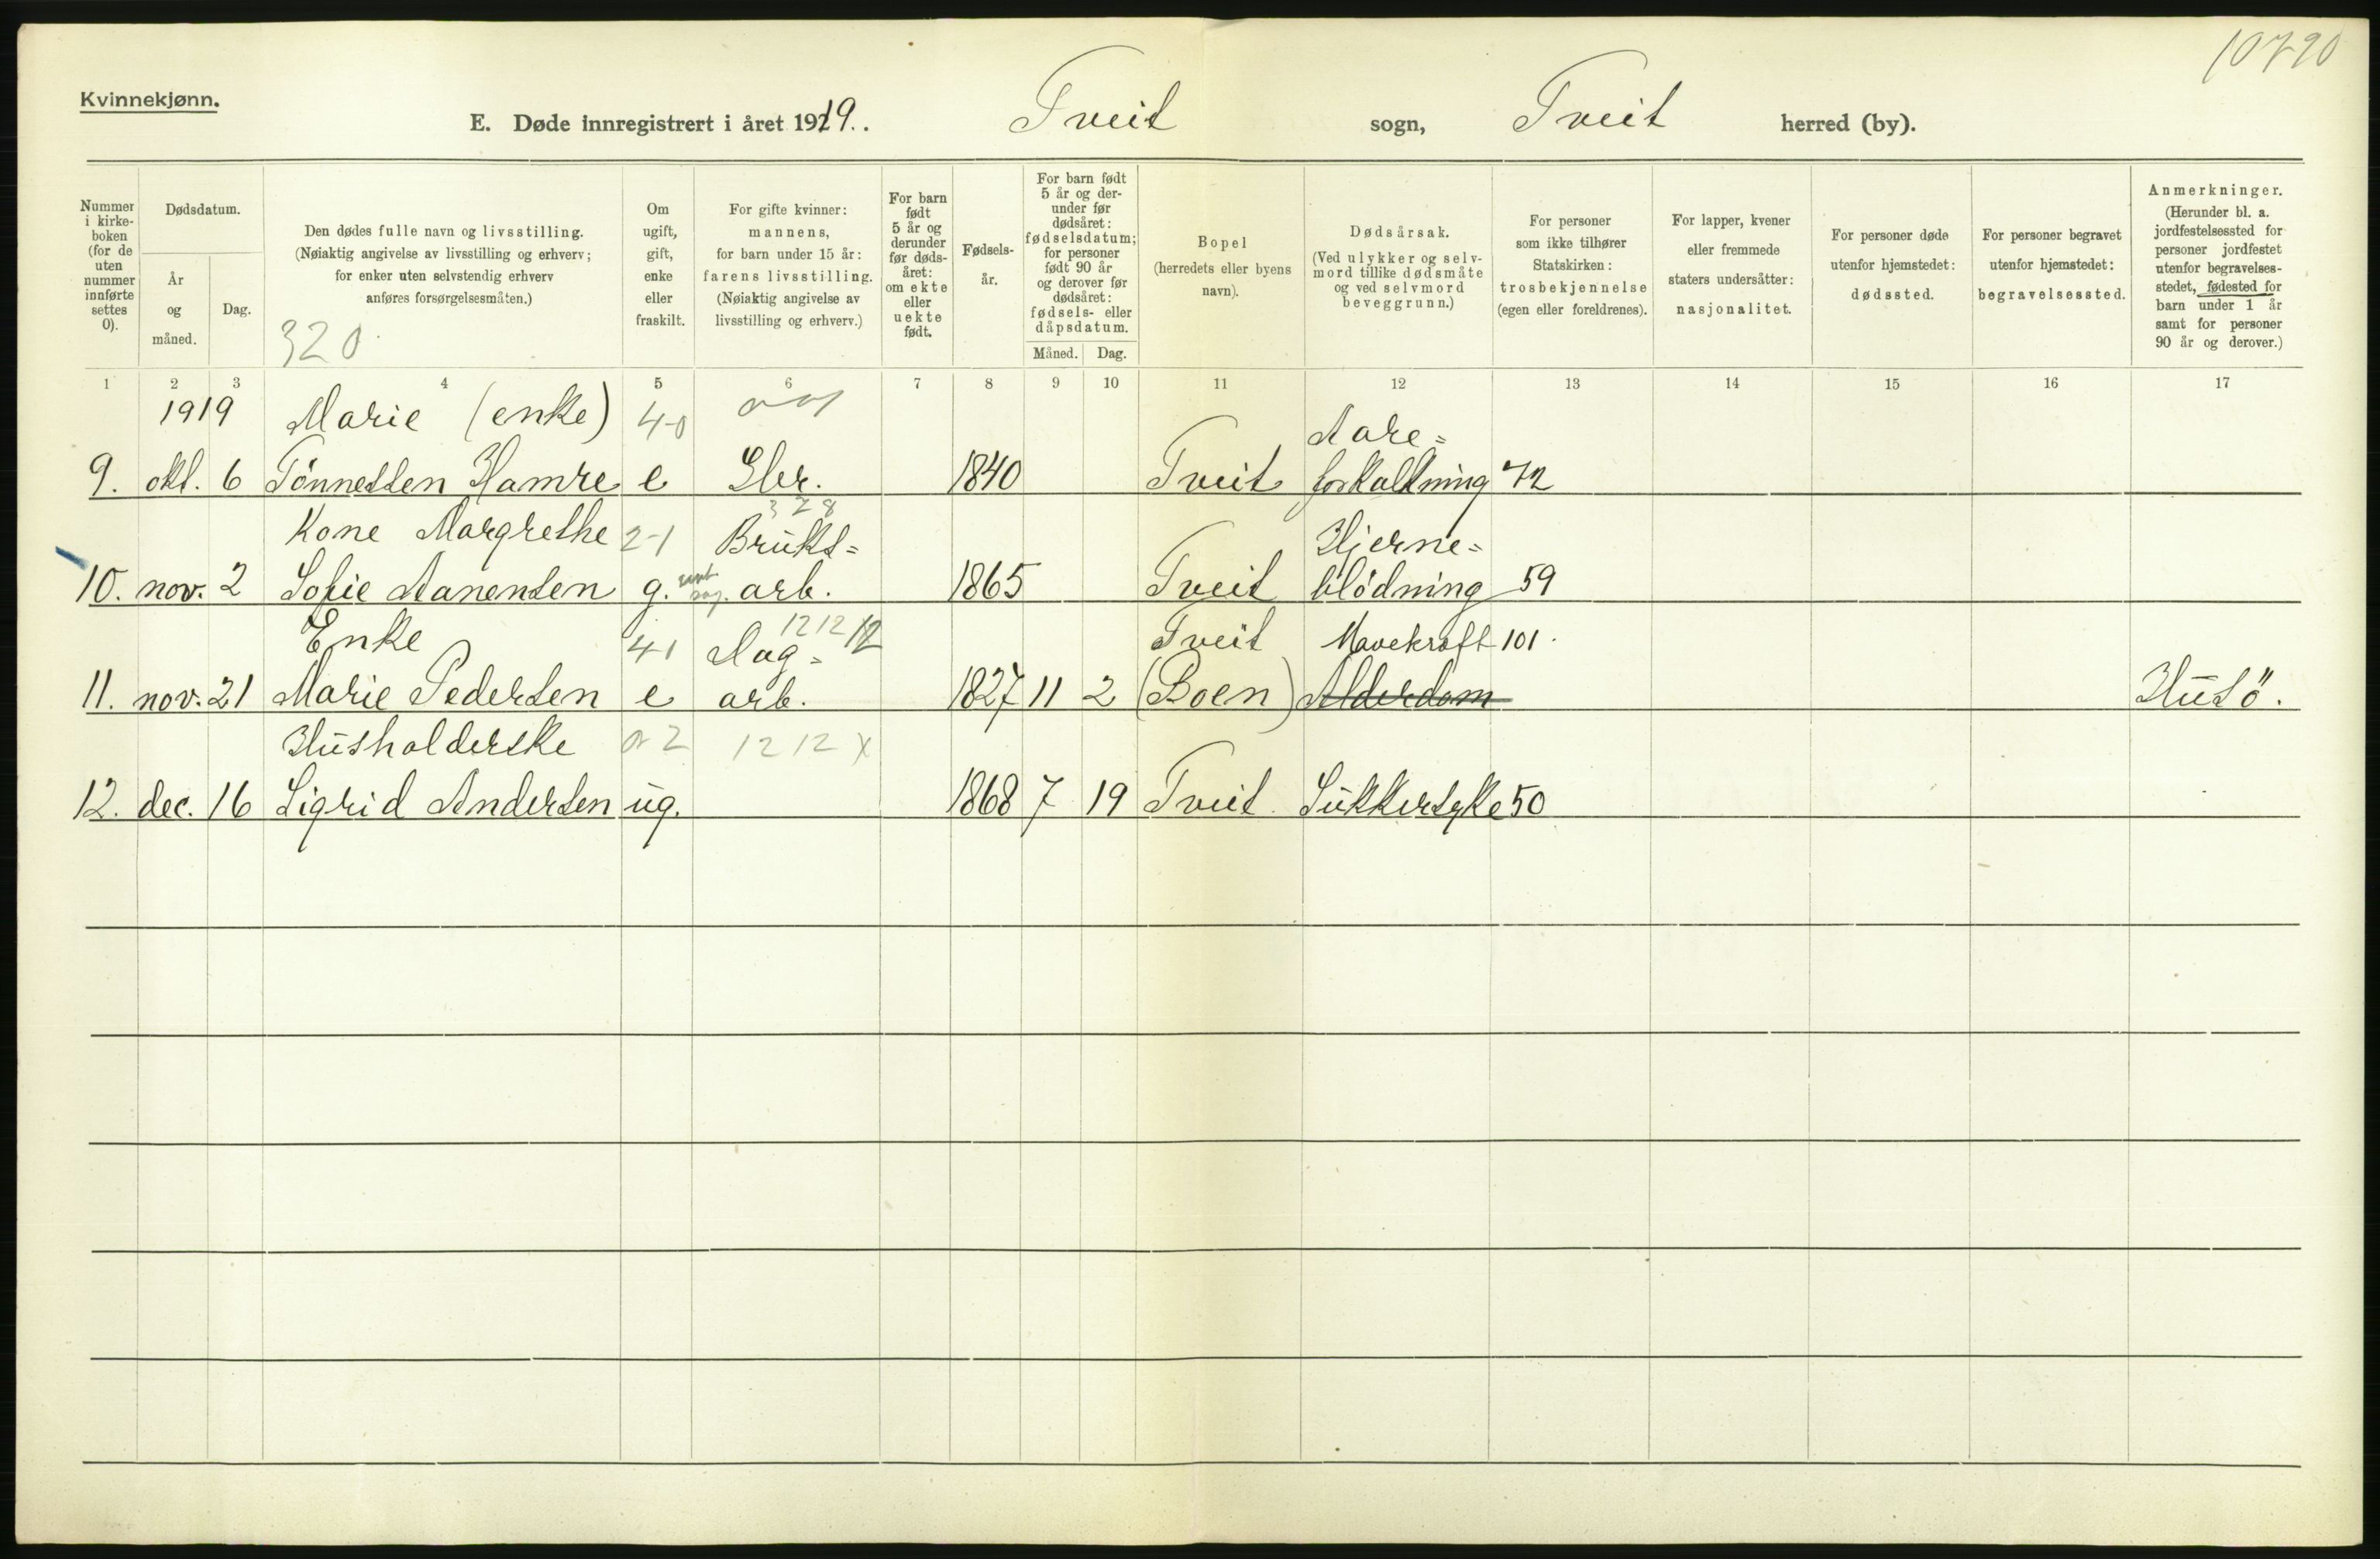 10790
Kvinnekjønn.
E. Døde innregistrert i året 1919. Tveit sogn, Tveit herred (by).
Nummer i kirke- boken (for de uten nummer innførte settes 0).
Dødsdatum.
År og måned.
Dag.
Den dødes fulle navn og livsstilling.
(Nøiaktig angivelse av livsstilling og erhverv;
for enker uten selvstendig erhverv
anføres forsørgelsesmåten.)
320
Om ugift, gift, enke eller fraskilt.
For gifte kvinner:
mannens,
for barn under 15 år:
farens livsstilling.
(Nøiaktig angivelse av
livsstilling og erhverv.)
For barn født 5 år og derunder før døds- året: om ekte eller uekte født.
Fødsels- år.
For barn født 5 år og der- under før dødsåret: fødselsdatum; for personer født 90 år og derover før dødsåret: fødsels- eller dåpsdatum.
Måned. Dag.
Bopel
(herredets eller byens
navn).
Dødsårsak.
(Ved ulykker og selv-
mord tillike dødsmåte
og ved selvmord
beveggrunn.)
For personer
som ikke tilhører
Statskirken:
trosbekjennelse
(egen eller foreldrenes).
For lapper, kvener
eller fremmede
staters undersåtter:
nasjonalitet.
For personer døde
utenfor hjemstedet:
dødssted.
For personer begravet
utenfor hjemstedet:
begravelsessted.
Anmerkninger.
(Herunder bl. a.
jordfestelsessted for
personer jordfestet
utenfor begravelses-
stedet, fødested for
barn under 1 år
samt for personer
90 år og derover.)
1 2 3 4 5 6 7 8 9 10 11 12 13 14 15 16 17
1919 Marie (enke) 40 Aare=
9. okt. 6 Tönnessen Hamre e Gbr. 1840 Tveit forkalkning 72
328
Kone Margrethe 21 Bruks= Hjerne=
10. nov. 2 Sofie Aanensen g. arb. 1865 Tveit blödning 59
Enke 41 Dag= 12 12 12 Tveit Mavekræft 101.
11. nov. 21 Marie Pedersen e arb. 1827 11 2 (Boen) Alderdom Husö.
Husholderske 02 12 12 X
12. dec. 16 Sigrid Andersen ug. 1868 7 19 Tveit Sukkersyke 50